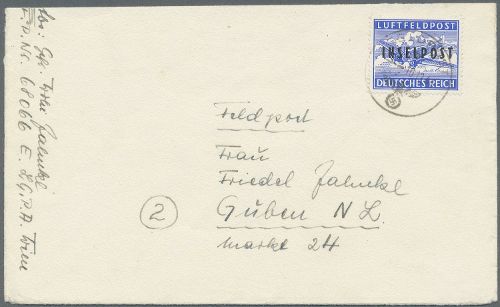 Abs: Gfr. Jahnke
F.P. Nr. 68066 E. L.G.P.A. Wien
LUFTFELDPOST
INSELPOST
DEUTSCHES REICH
Feldpost
Frau
Friedel Jahnke
Guben N L.
Markt 24
2